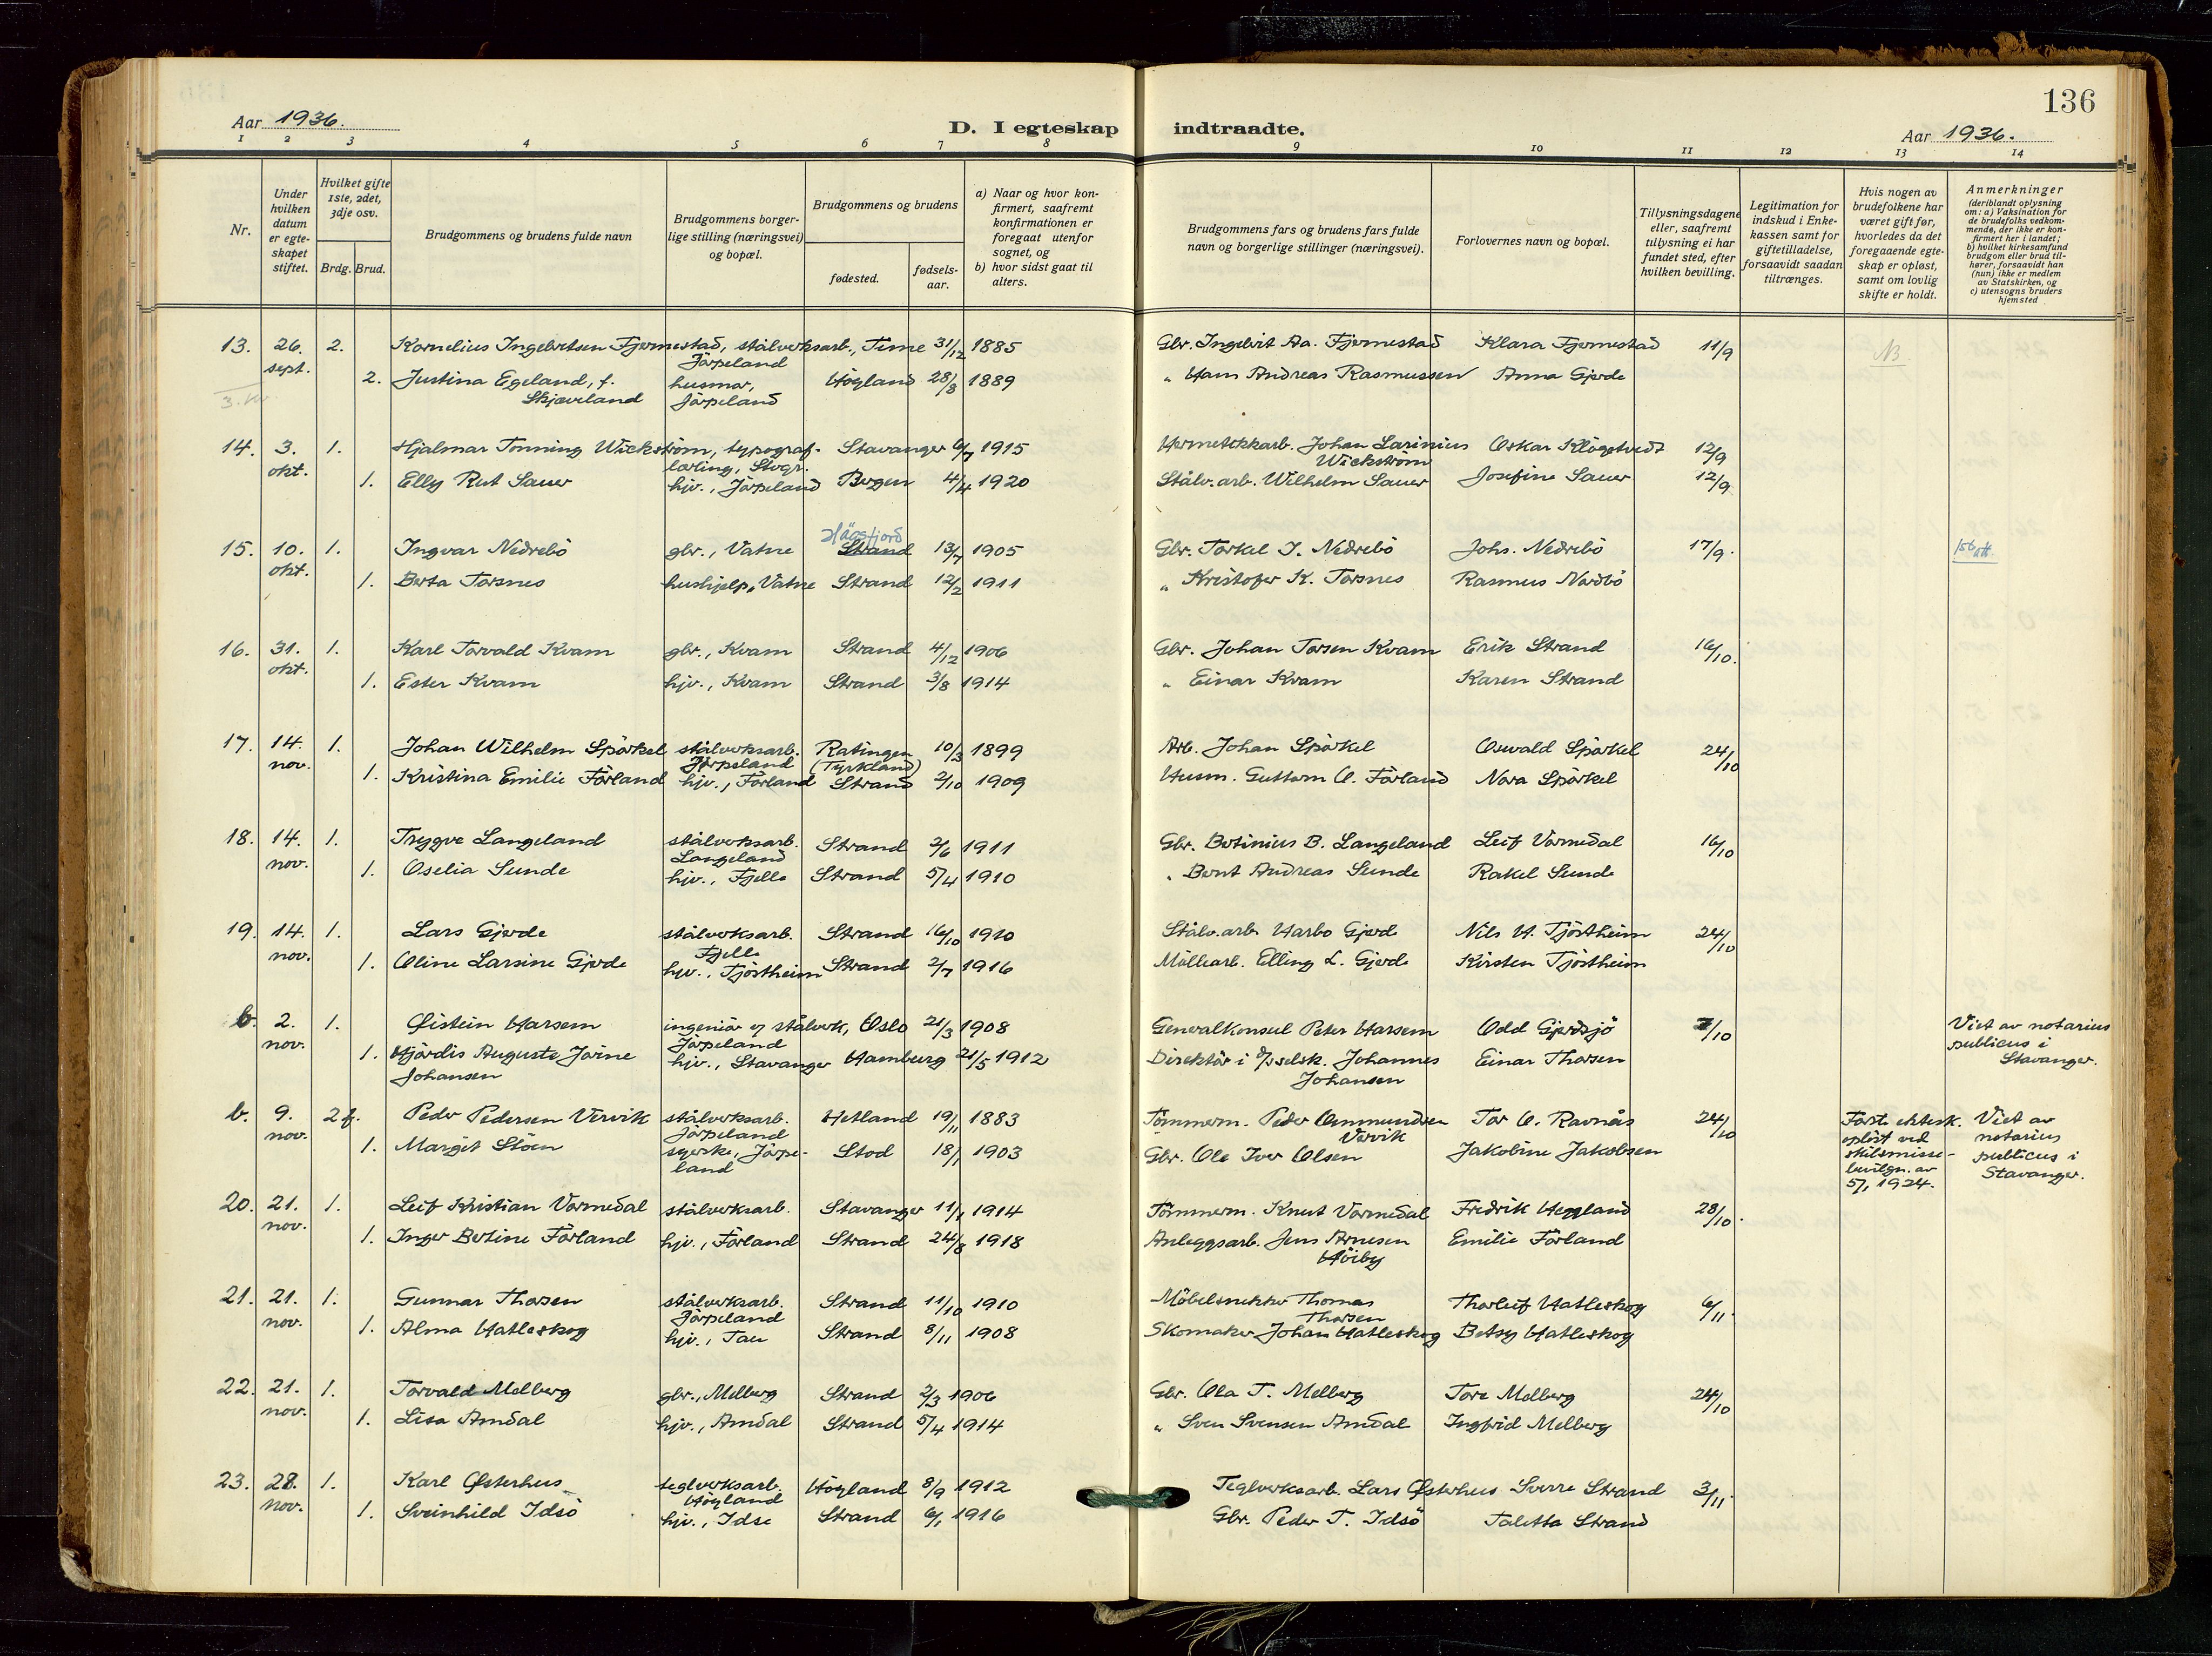 136
Aar 1936.
D. I egteskap indtraadte.
Aar 1936.
1 2 3 4 5 6 7 8 9 10 11 12 13 14
Nr.
Under hvilken datum er egteskapet stiftet.
Hvilket gifte 1ste, 2det, 3dje osv.
Brdg. Brud.
Brudgommens og brudens fulde navn
Brudgommens borgerlige stilling (næringsvei) og bopæl.
Brudgommens og brudens
fødested.
fødselsaar.
a) Naar og hvor konfirmert, saafremt konfirmationen er foregaat utenfor sognet, og
b) hvor sidst gaat til alters.
Brudgommens fars og brudens fars fulde navn og borgerlige stillinger (næringsvei).
Forlovernes navn og bopæl.
Tillysningsdagene eller, saafremt tillysning ei har fundet sted, efter hvilken bevilling.
Legitimation for indskud i Enkekassen samt for giftetilladelse, forsaavidt saadan tiltrænges.
Hvis nogen av brudefolkene har været gift før, hvorledes da det foregaaende egteskap er opløst, samt om lovlig skifte er holdt.
Anmerkninger (deriblandt oplysning om: a) Vaksination for de brudefolks vedkommende, der ikke er konfirmert her i landet; b) hvilket kirkesamfund brudgom eller brud tilhører, forsaavidt han (hun) ikke er medlem av Statskirken, og c) utensogns bruders hjemsted
13. 26. sept. 2. Kornelius Ingebretsen Fjermestad, stålverksarb., Jörpeland Time 31/12 1885 Gbr. Ingebrit Aa. Fjermestad Klara Fjermestad 11/9 NB
2. Justina Egeland, f. Skjæveland husmor, Jörpeland Högland 28/8 1889 " Hans Andreas Rasmussen Anna Gjerde
14. 3. okt. 1. Hjalmar Tonning Wickström, typograflærling, Stvgr. Stavanger 6/7 1915 Hermetikkarb. Johan Larinius Wickström Oskar Klögetvedt 12/9
1. Elly Rut Sauer hjv., Jörpeland Bergen 4/4 1920 Stålv.arb. Wilhelm Sauer Josefine Sauer 12/9
15. 10. okt. 1. Ingvar Nedrebö gbr., Vatne Strand Högsfjord 13/7 1905 Gbr. Torkel I. Nedrebö Johs. Nedrebö 17/9.
1. Berta Torsnes hushjelp, Vatne Strand 12/2 1911 " Kristofer K. Torsnes Rasmus Nordbö
16. 31. okt. 1. Karl Torvald Kvam gbr., Kvam Strand 4/12 1906 Gbr. Johan Torsen Kvam Erik Strand 16/10.
1. Ester Kvam hjv., Kvam Strand 3/8 1914 " Einar Kvam Karen Strand
17. 14. nov. 1. Johan Wilhelm Spörkel stålverksarb. Jörpeland Ratingen (Tyskland) 10/3 1899 Arb. Johan Spörkel Osvald Spörkel 24/10
1. Kristina Emilie Förland hjv., Förland Strand 2/10 1909 Husm. Guttorm O. Förland Nora Spörkel
18. 14. nov. 1. Tryggve Langeland stålverksarb. Langeland Strand 2/6 1911 Gbr. Botinius B. Langeland Leif Vormedal 16/10
1. Oselia Sunde hjv., Fjelle Strand 5/4 1910 " Bernt Andreas Sunde Rakel Sunde
19. 14. nov. 1. Lars Gjerde stålverksarb. Fjelle Strand 16/10 1910 Stålv.arb. Harbo Gjerde Nils H. Tjöstheim 24/10
1. Oline Larsine Gjerde hjv., Tjöstheim Strand 2/7 1916 Möllearb. Elling L. Gjerde Kirsten Tjöstheim
b. 2. nov. 1. Øistein Harsem ingeniör v/ stålverk, Jörpeland Oslo 21/3 1908 Generalkonsul Peter Harsem Odd Gjerdsjö 7/10 Viet av notarius publicus i Stavanger.
1. Hjördis Auguste Jörine Johansen hjv., Stavanger Hamburg 21/5 1912 Direktör i D/S selsk. Johannes Johansen Einar Thorsen
b. 9. nov. 2 f. Peder Pedersen Vervik stålverksarb. Jörpeland Hetland 19/11 1883 Tömmerm. Peder Ommundsen Vervik Tor O. Ravnås 24/10 Förste ektesk. oplöst ved skilsmissebevilgn. av 5/1 1924. Viet av notarius publicus i Stavanger.
1. Margit Stöen syerske, Jörpeland Stod 18/1 1903 Gbr. Ole Iver Olsen Jakobine Jakobsen
20. 21. nov. 1. Leif Kristian Vormedal stålverksarb. Stavanger 11/1 1914 Tömmerm. Knut Vormedal Fredrik Heggland 28/10.
1. Inger Bertine Förland hjv., Förland Strand 24/8 1918 Anleggsarb. Jens Arnesen Höiby Emilie Förland
21. 21. nov. 1. Gunnar Thorsen stålverksarb. Jörpeland Strand 11/10 1910 Möbelsnekker Thomas Thorsen Thorleif Hatleskog 6/11.
1. Alma Hatleskog hjv., Tau Strand 8/11 1908 Skomaker Johan Hatleskog Betsy Hatleskog
22. 21. nov. 1. Torvald Melberg gbr., Melberg Strand 2/3 1906 Gbr. Ola T. Melberg Tore Melberg 24/10
1. Lisa Amdal hjv., Amdal Strand 5/4 1914 " Sven Svensen Amdal Ingfrid Melberg
23. 28. nov. 1. Karl Østerhus teglverksarb. Högland Högland 8/9 1912 Teglverksarb. Lars Østerhus Sverre Strand 3/11.
1. Sveinhild Idsö hjv., Idse Strand 6/1 1916 Gbr. Peder T. Idsö Taletta Strand